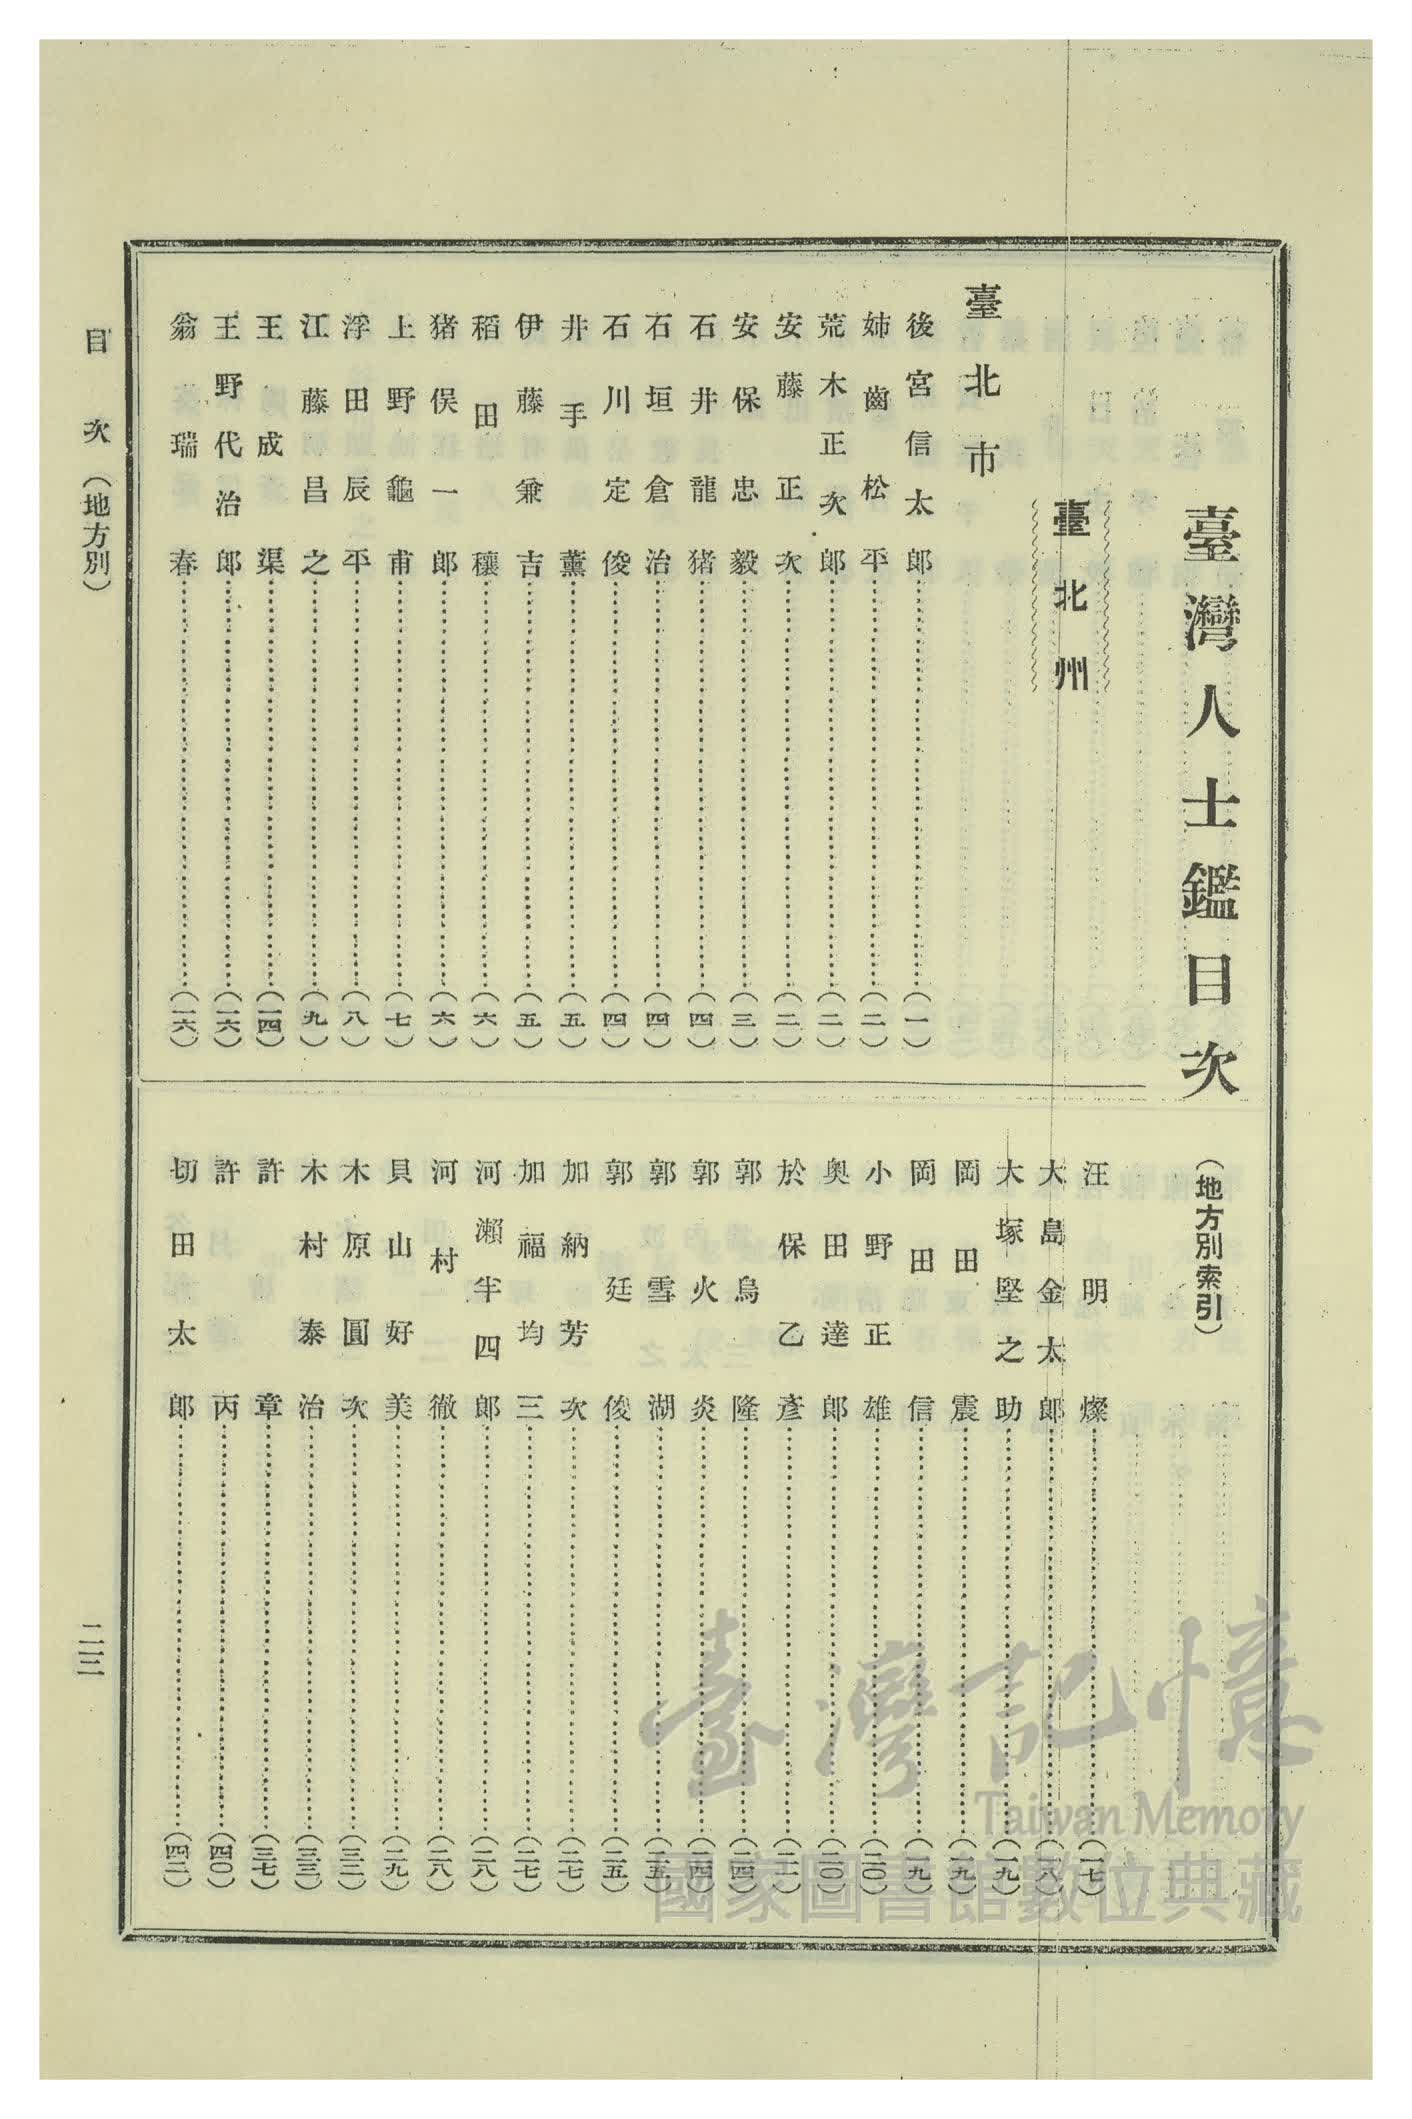 臺灣人士鑑目次（地方別索引）
臺北州
臺北市
後宮信太郎（一）
姉齒松平（二）
荒木正次郎（二）
安藤正次（二）
安保忠毅（三）
石井龍猪（四）
石垣倉治（四）
石川定俊（四）
井手薰（五）
伊藤兼吉（五）
稻田穰（六）
猪俣一郎（六）
上野龜甫（七）
浮田辰平（八）
江藤昌之（九）
王成渠（一四）
王野代治郎（一六）
翁瑞春（一六）
汪明燦（一七）
大島金太郎（一八）
大塚堅之助（一九）
岡田震（一九）
岡田信（一九）
小野正雄（二〇）
奥田達郎（二〇）
於保乙彥（二二）
郭烏隆（二四）
郭火炎（二四）
郭雪湖（二五）
郭廷俊（二五）
加納芳次（二七）
加福均三（二七）
河瀨半四郎（二八）
河村徹（二八）
貝山好美（二九）
木原圓次（三二）
木村泰治（三三）
許章（三七）
許丙（四〇）
切田太郎（四二）
目次（地方別）
二三
臺灣記憶
Taiwan Memory
國家圖書館數位典藏